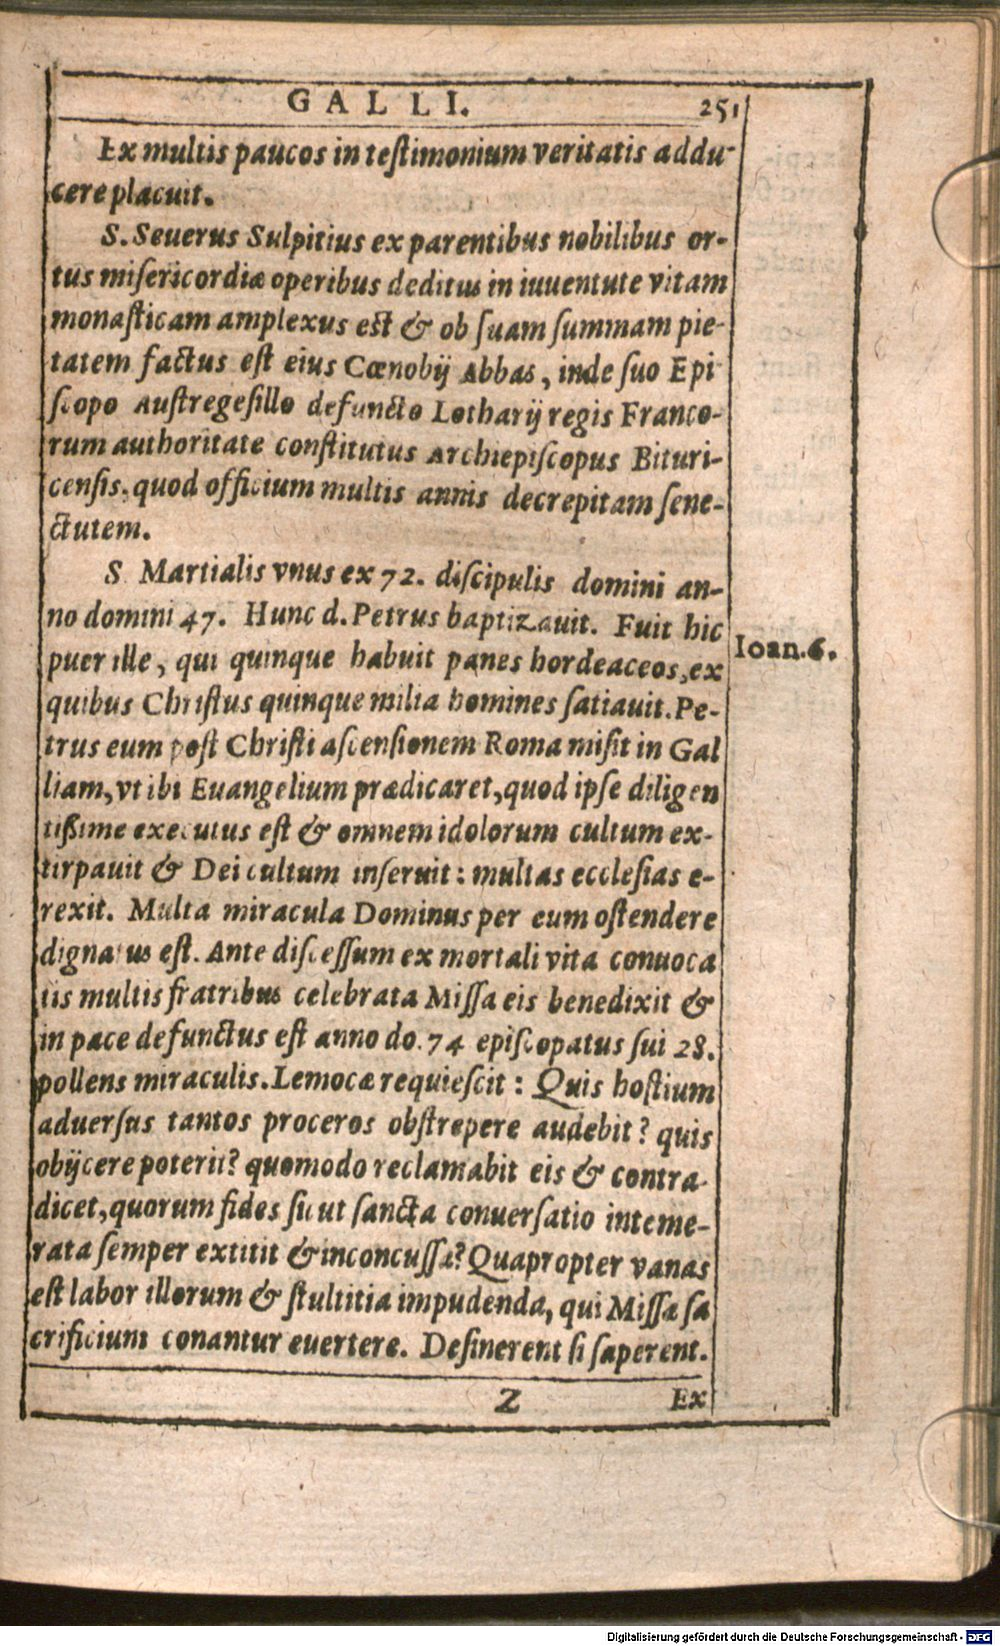 GALLI. 251
Ex multis paucos in teſtimonium veritatis addu-
cere placuit.
S. Seuerus Sulpitius ex parentibus nobilibus or-
tus miſericordiæ operibus deditus in iuuentute vitam
monaſticam amplexus eſt & ob ſuam ſummam pie-
tatem factus eſt eius Cœnobij Abbas, inde ſuo Epi
ſcopo Auſtregeſillo defuncto Lotharij regis Franco-
rum authoritate conſtitutus Archiepiſcopus Bituri-
cenſis. quod officium multis annis decrepitam ſene-
ctutem.
S Martialis vnus ex 72. diſcipulis domini an-
no domini 47. Hunc d. Petrus baptizauit. Fuit hic
puer ille, qui quinque habuit panes hordeaceos, ex
Ioan. 6.
quibus Chriſtus quinque milia homines ſatiauit. Pe-
trus eum poſt Chriſti aſcenſionem Roma miſit in Gal
liam, vt ibi Euangelium prædicaret, quod ipſe diligen
tißime executus eſt & omnem idolorum cultum ex-
tirpauit & Dei cultum inſeruit: multas eccleſias e-
rexit. Multa miracula Dominus per eum oſtendere
dignatus eſt. Ante diſceſſum ex mortali vita conuoca
tis multis fratribus celebrata Miſſa eis benedixit &
in pace defunctus eſt anno do. 74 epiſcopatus ſui 28.
pollens miraculis. Lemocæ requieſcit: Quis hoſtium
aduerſus tantos proceros obſtrepere audebit? quis
obijcere poterit? quomodo reclamabit eis & contra-
dicet, quorum fides ſicut ſancta conuerſatio inteme-
rata ſemper extitit & inconcuſſa? Quapropter vanas
eſt labor illorum & ſtultitia impudenda, qui Miſſæ ſa
crificium conantur euertere. Deſinerent ſi ſaperent.
Z Ex
Digitalisierung gefördert durch die Deutsche Forschungsgemeinschaft - DFG